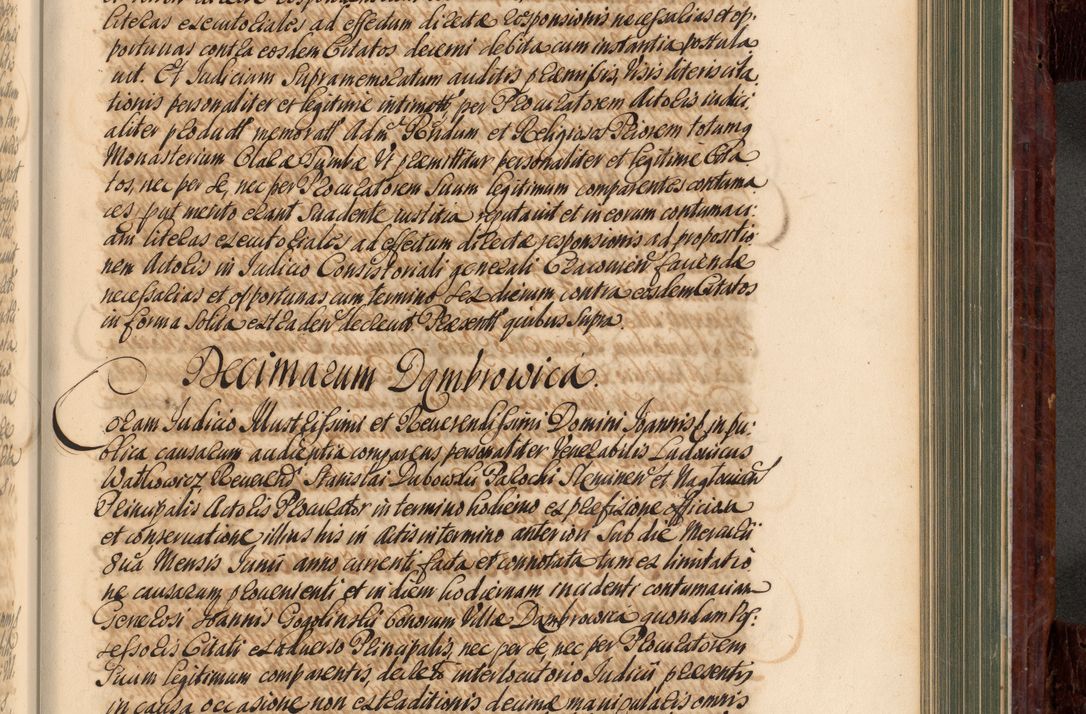 literas executoriales ad effectum directae responsionis necessarias et op:
portunas contra eosdem Citatos decerni debita cum instantia postula
uit. Et Iudicium Supramemoratum auditis praemissis, visis literis cita
tionis personaliter et legitime intimatt per Procuratorem Actoris iudici
aliter product memoratt Adm Rndum et Religiosos Priorem totumq
Monasterium Clarae Tumbae Vt praemittitur personaliter et legitime Cita
tos, nec per se, nec per Procuratorem Suum legitimum comparentes contuma
ces put merito erant Suadente iustitia reputauit et in eorum contumaci:
am literas executoriales ad effectum directae responsionis ad propositio
nem Actoris in Iudicio Consistoriali generali Cracouien fauendae
necessarias et opportunas cum termino sex dierum contra eosdem Citatos
in forma Solita extraden decreuit Praesentt quibus Supra.
Decimarum Dąmbrowica.
Coram Iudicio Illustrissimi et Reuerendissimi Domini Ioannis in pu:
blica causarum audientia comparens personaliter Venerabilis Ladoicus
Watkowicz Reuerend Stanislai Dabowski Parochi et
Principalis Actoris Procurator in termino hodierno ex praefixione officiali
et conseruatione illius his in actis in termino anteriori Sub die Mercurii
8ua Mensis Iunii anno currenti facta et connotata tum ex limitatio
ne causarum proueniente et in diem hodiernam incidenti contumaciam
Generosi Ioannis Gogolinski bonorum Villae Dąmbrowica quondam Pos:
sessoris Citati ex aduerso Principalis, nec per se, nec per Procuratorem
Suum legitimum comparentis, decreto interlocutorio Iudicii praesentis
in causa occasione non extraditionis decimae manipularis omnis